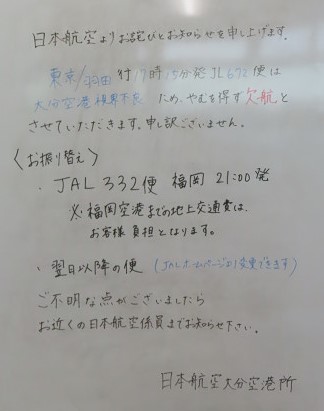 日本航空よりお詫びとお知らせを申し上げます。
東京/羽田行17時15分発JL672便は
大分空港視界不良 ため、やむを得ず欠航と
させていただきます。申し訳ございません。
〈お振り替え〉
・JAL332便 福岡 21:00発
※福岡空港までの地上交通費は、
お客様負担となります。
・翌日以降の便 (JALホームページより変更できます)
ご不明な点がございましたら
お近くの日本航空係員までお知らせ下さい。
日本航空大分空港所